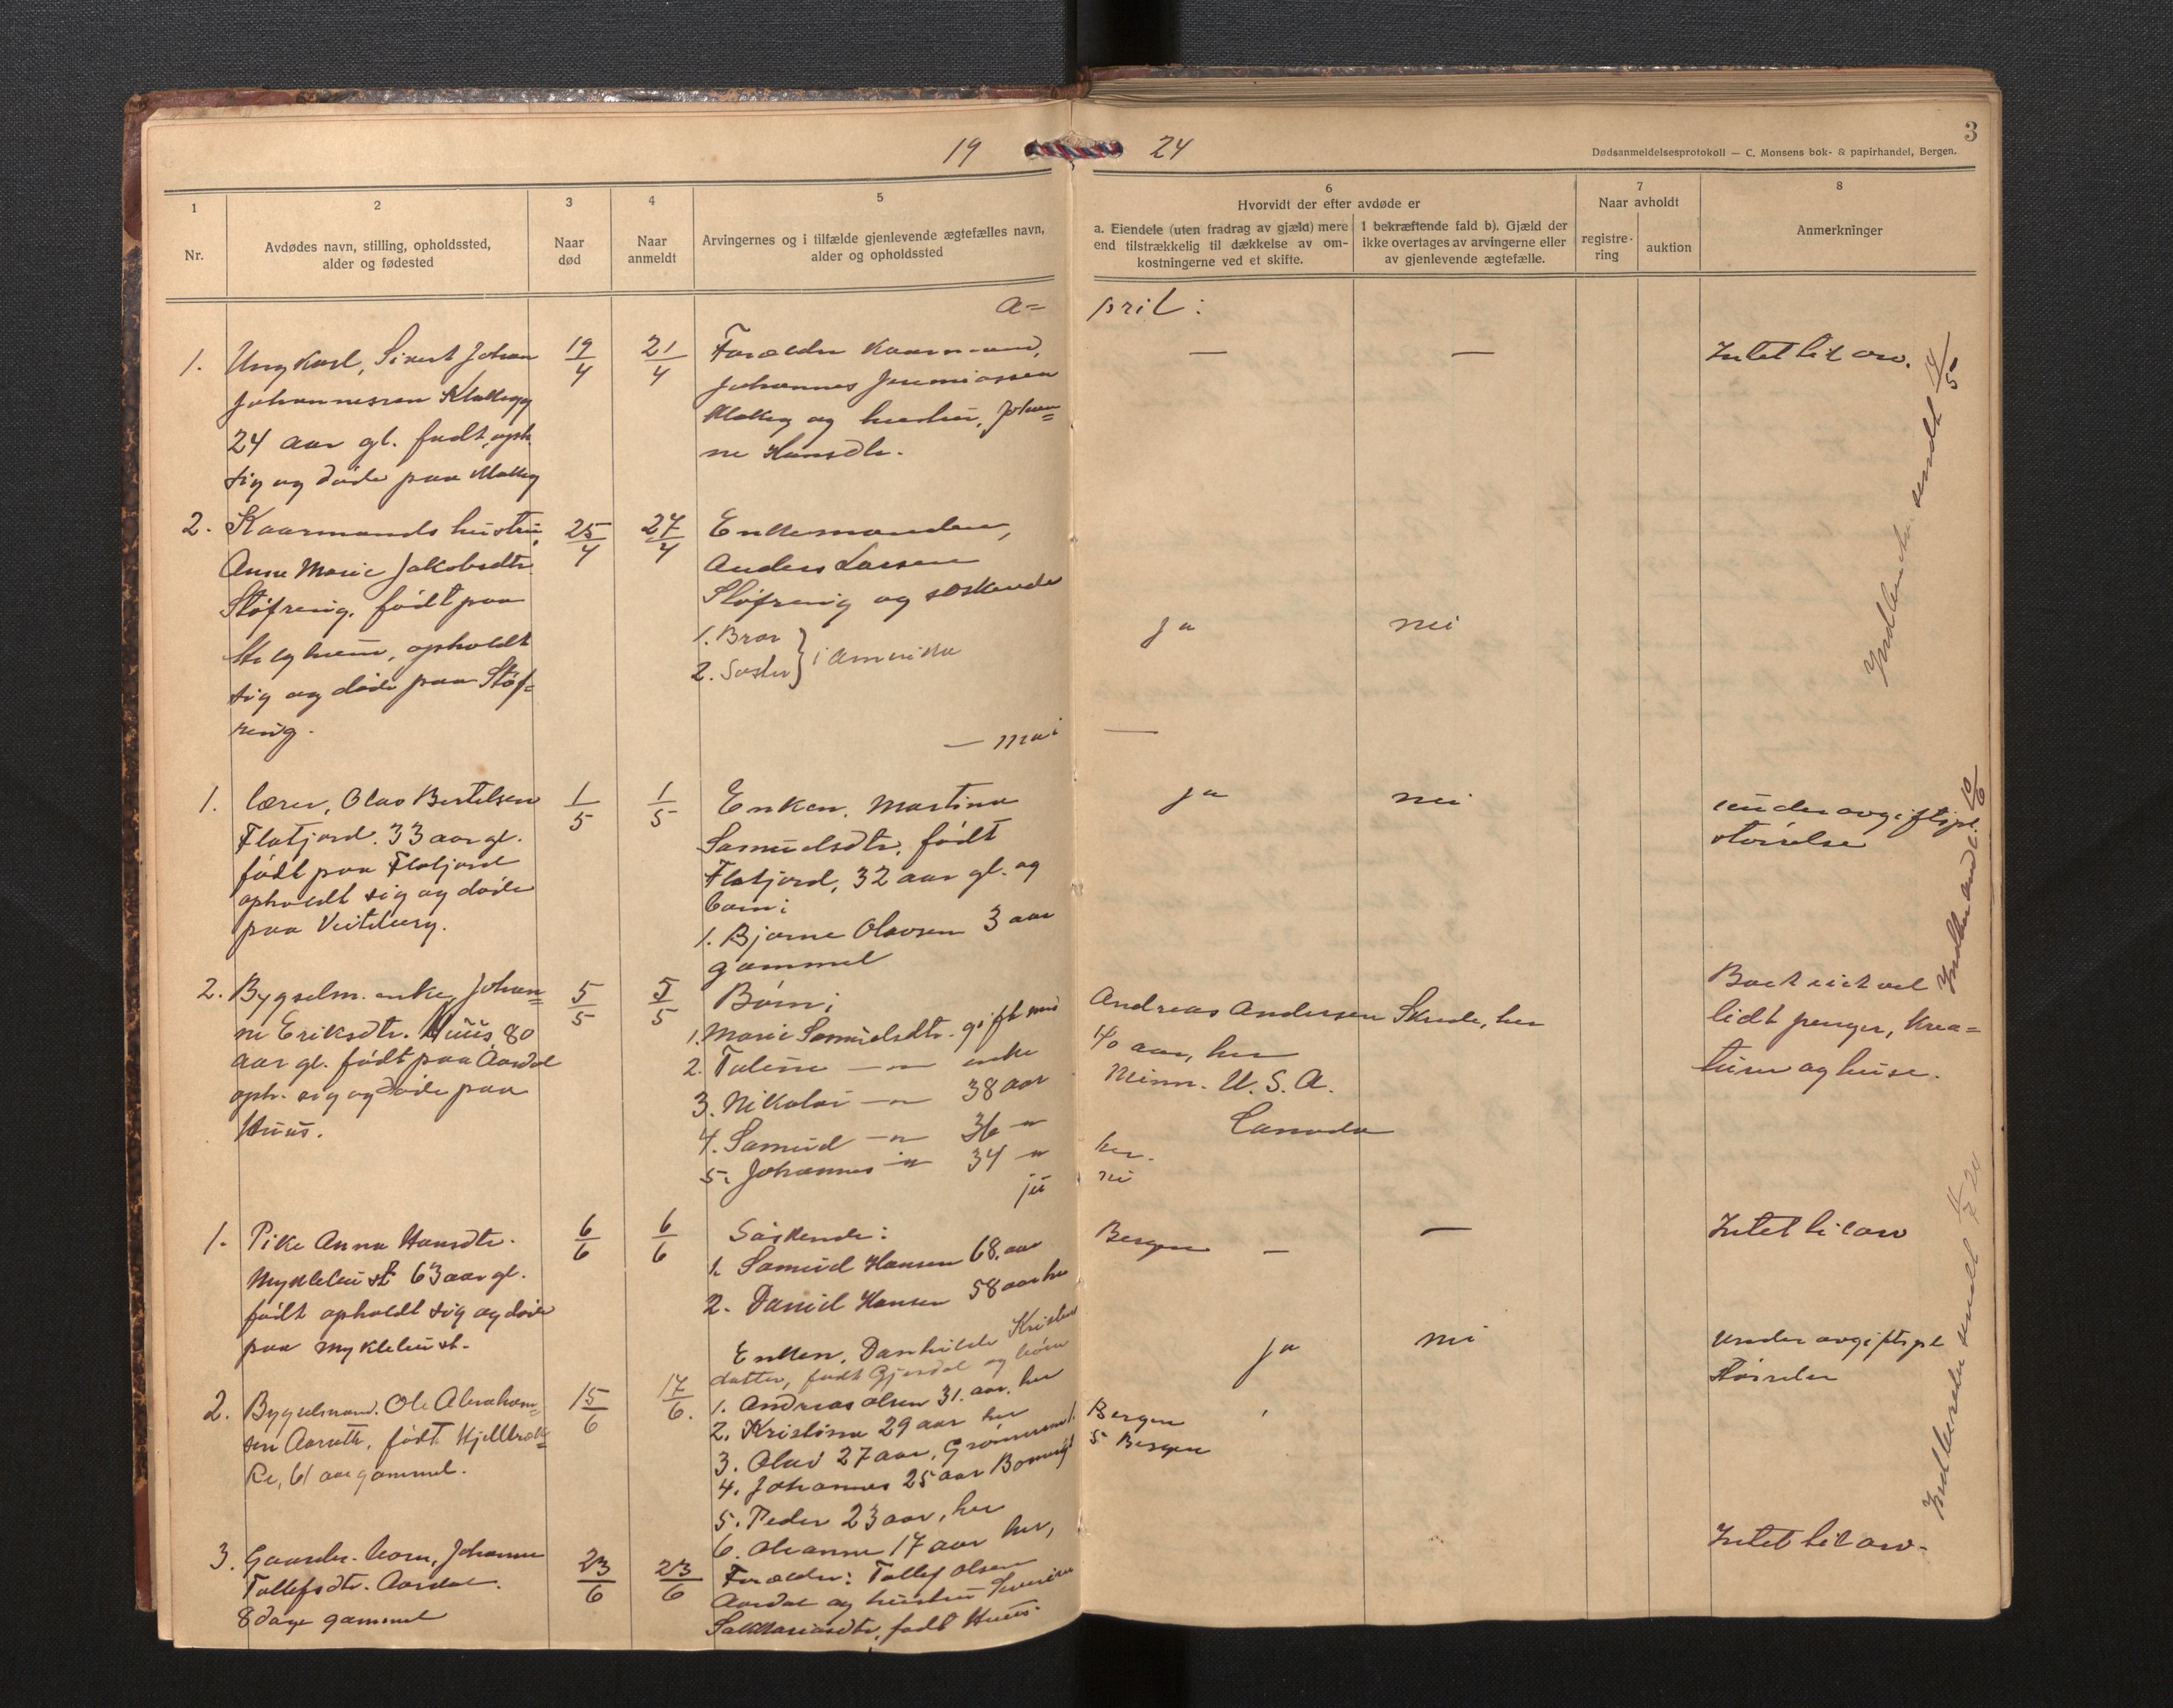 19 24
3
Dødsanmeldelsesprotokoll — C. Monsens bok- & papirhandel, Bergen.
1
Nr.
2
Avdødes navn, stilling, opholdssted,
alder og fødested
3
Naar
død
4
Naar
anmeldt
5
Arvingernes og i tilfælde gjenlevende ægtefælles navn,
alder og opholdssted
6
Hvorvidt der efter avdøde er
a. Eiendele (uten fradrag av gjæld) mere
end tilstrækkelig til dækkelse av om-
kostningerne ved et skifte.
I bekræftende fald b). Gjæld der
ikke overtages av arvingerne eller
av gjenlevende ægtefælle.
7
Naar avholdt
registre-
ring
auktion
8
Anmerkninger
A= pril:
1. Ungkarl, Sivert Johan
Johannessen Klakegg
24 aar gl. født, oph.
sig og døde paa Klakeg
19/4
21/4
Forældre Kaarmand,
Johannes Jeremiassen
Klakeg og hustru, Johan=
ne Hansdtr.
— —
Intet til arv.
2. Kaarmands hustru,
Anne Marie Jakobsdtr.
Støfring, født paa
opholdt
sig og døde paa Støf=
ring.
25/4
27/4
Enkemanden,
Anders Larsen
Støfring og søskende
1. Bror
2. Søster } i Amerika
ja
nei
Indberetn. sendt 14/5
— mai —
1. Lærer, Olav Bertelsen
Flatjord. 33 aar gl.
født paa Flatjord
opholdt sig og døde
paa
1/5
1/5
Enken, Martina
Samuelsdtr. født
Flatjord, 32 aar gl. og
barn:
1. Bjarne Olavsen 3 aar
gammel
ja
nei
under avgiftspl.
størrelse
2. Bygselm. enke, Johan=
ne Eriksdtr. Huus, 80
aar gl. født paa Aardal
oph. sig og døde paa
Huus.
5/5
5/5
Børn:
1. Marie Samuelsdtr. gift med Andreas Andersen Skrede, her
2. Taline — " — enke 40 aar, her
3. Nikolai — " — 38 aar Minn. U. S. A.
4. Samuel — " — 36 " Canada
5. Johannes — " — 34 " her.
lidt penger, krea=
turer og huse.
Indber. sendt. 10/6
ju ni
1. Pike Anna Hansdtr.
Myklebust 63 aar gl.
født opholdt sig og døde
paa Myklebust.
6/6
6/6
Søskende:
1. Samuel Hansen 68. aar Bergen
2. Daniel Hansen 58 aar her
— —
Intet til arv
2. Bygselmand. Ole Abraham=
sen Aarseth, født Kjellbrek=
ke, 61 aar gammel.
15/6
17/6.
Enken, Danhilde Kristens
datter, født Gjerdal og børn
1. Andreas Olsen 31. aar. her
2. Kristine 29 aar her
3. Olai 27 aar, Bergen
4. Johannes 25 aar Bergen
5. Peder 23 aar, her
6. Oleanne 17 aar her,
ja
nei
under avgiftspl
størrelse
3. Gaardbr. barn, Johanne
Tollefsdtr. Aardal.
8 dage gammel
23/6
23/6
Forældre: Tollef Olsen
Aardal og hustru Severine
Sakkariasdtr, født Huus.
Intet til arv.
Indberetn. sendt